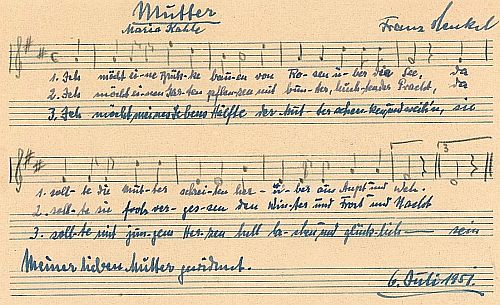 Mutter
Maria Kahle
Franz Henkel
1. Ich möcht ei-ne Brük-ke bau-en von Ro-sen ü-ber die See, da
2. Ich möcht ei-nen Gar-ten pflan-zen mit bun-ter, leuch-tender Pracht, da
3. Ich möcht meines Lebens Hälfte der Mut-ter schenken und weih'n, sie
1. soll-te die Mut-ter schrei-ten her-ü-ber aus Angst und Weh.
2. sollt sie froh ver-ges-sen den Win-ter und Frost und Nacht
3. soll-te mit jun-gem Her-zen hell la-chen und glück-lich sein
Meiner lieben Mutter gewidmet.
6. Juli 1951.